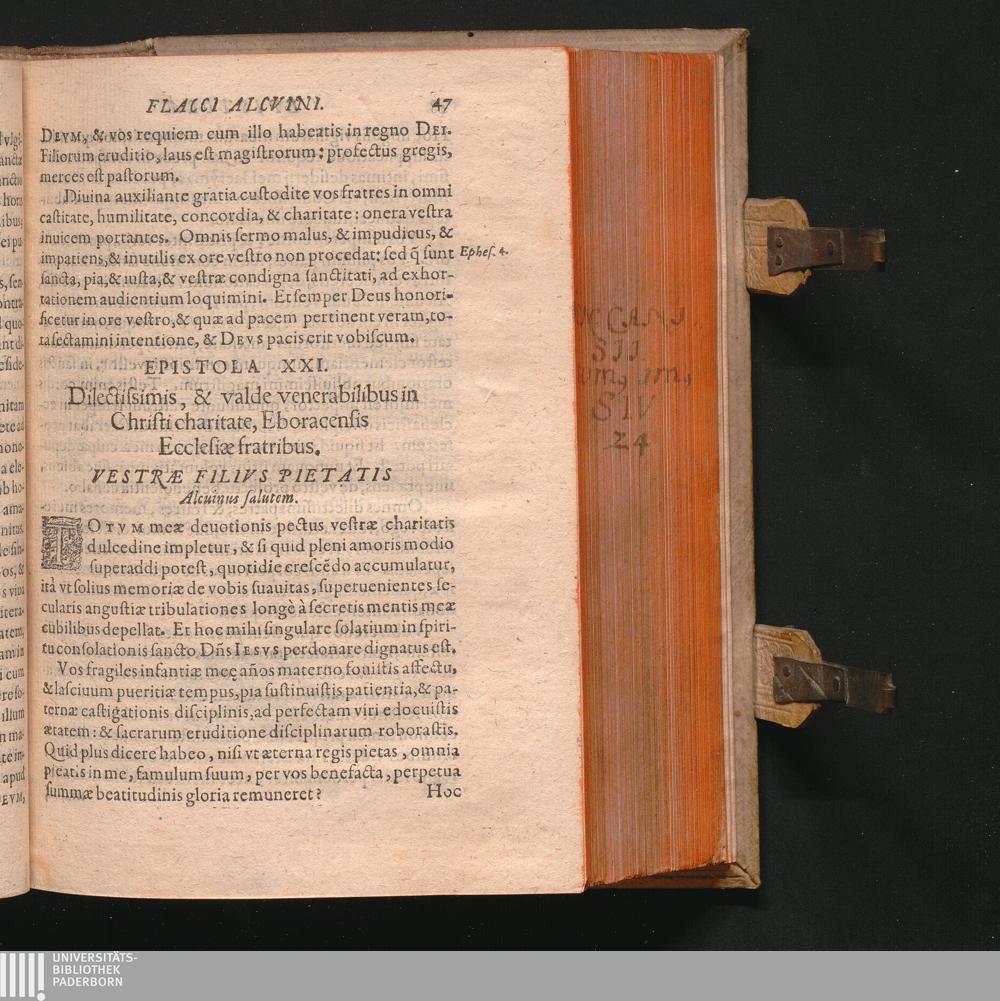 FLACCI ALCVINI. 47
DEVM, & vos requiem cum illo habeatis in regno DEI.
Filiorum eruditio, laus eſt magiſtrorum: profectus gregis,
merces eſt paſtorum.
Diuina auxiliante gratia cuſtodite vos fratres in omni
caſtitate, humilitate, concordia, & charitate: onera veſtra
inuicem portantes. Omnis ſermo malus, & impudicus, &
impatiens, & inutilis ex ore veſtro non procedat: ſed q̃ ſunt
Epheſ. 4.
ſancta, pia, & iuſta, & veſtræ condigna ſanctitati, ad exhor-
tationem audientium loquimini. Et ſemper Deus honori-
ficetur in ore veſtro, & quæ ad pacem pertinent veram, to-
ta ſectamini intentione, & DEVS pacis erit vobiſcum.
EPISTOLA XXI.
Dilectiſsimis, & valde venerabilibus in
Chriſti charitate, Eboracenſis
Eccleſiæ fratribus.
VESTRÆ FILIVS PIETATIS
Alcuinus ſalutem.
TOTVM meæ deuotionis pectus, veſtræ charitatis
dulcedine impletur, & ſi quid pleni amoris modio
ſuperaddi poteſt, quotidie creſcēdo accumulatur,
ità vt ſolius memoriæ de vobis ſuauitas, ſuperuenientes ſe-
cularis anguſtiæ tribulationes longè à ſecretis mentis meæ
cubilibus depellat. Et hoc mihi ſingulare ſolatium in ſpiri-
tu conſolationis ſancto Dñs IESVS perdonare dignatus eſt.
Vos fragiles infantiæ meę años materno fouiſtis affectu,
& laſciuum pueritiæ tempus, pia ſuſtinuiſtis patientia, & pa-
ternæ caſtigationis diſciplinis, ad perfectam viri edocuiſtis
ætatem: & ſacrarum eruditione diſciplinarum roboraſtis.
Quid plus dicere habeo, niſi vt æterna regis pietas, omnia
pietatis in me, famulum ſuum, per vos benefacta, perpetua
ſummæ beatitudinis gloria remuneret? Hoc
CANI
SII
SIV
24
UNIVERSITÄTS-
BIBLIOTHEK
PADERBORN